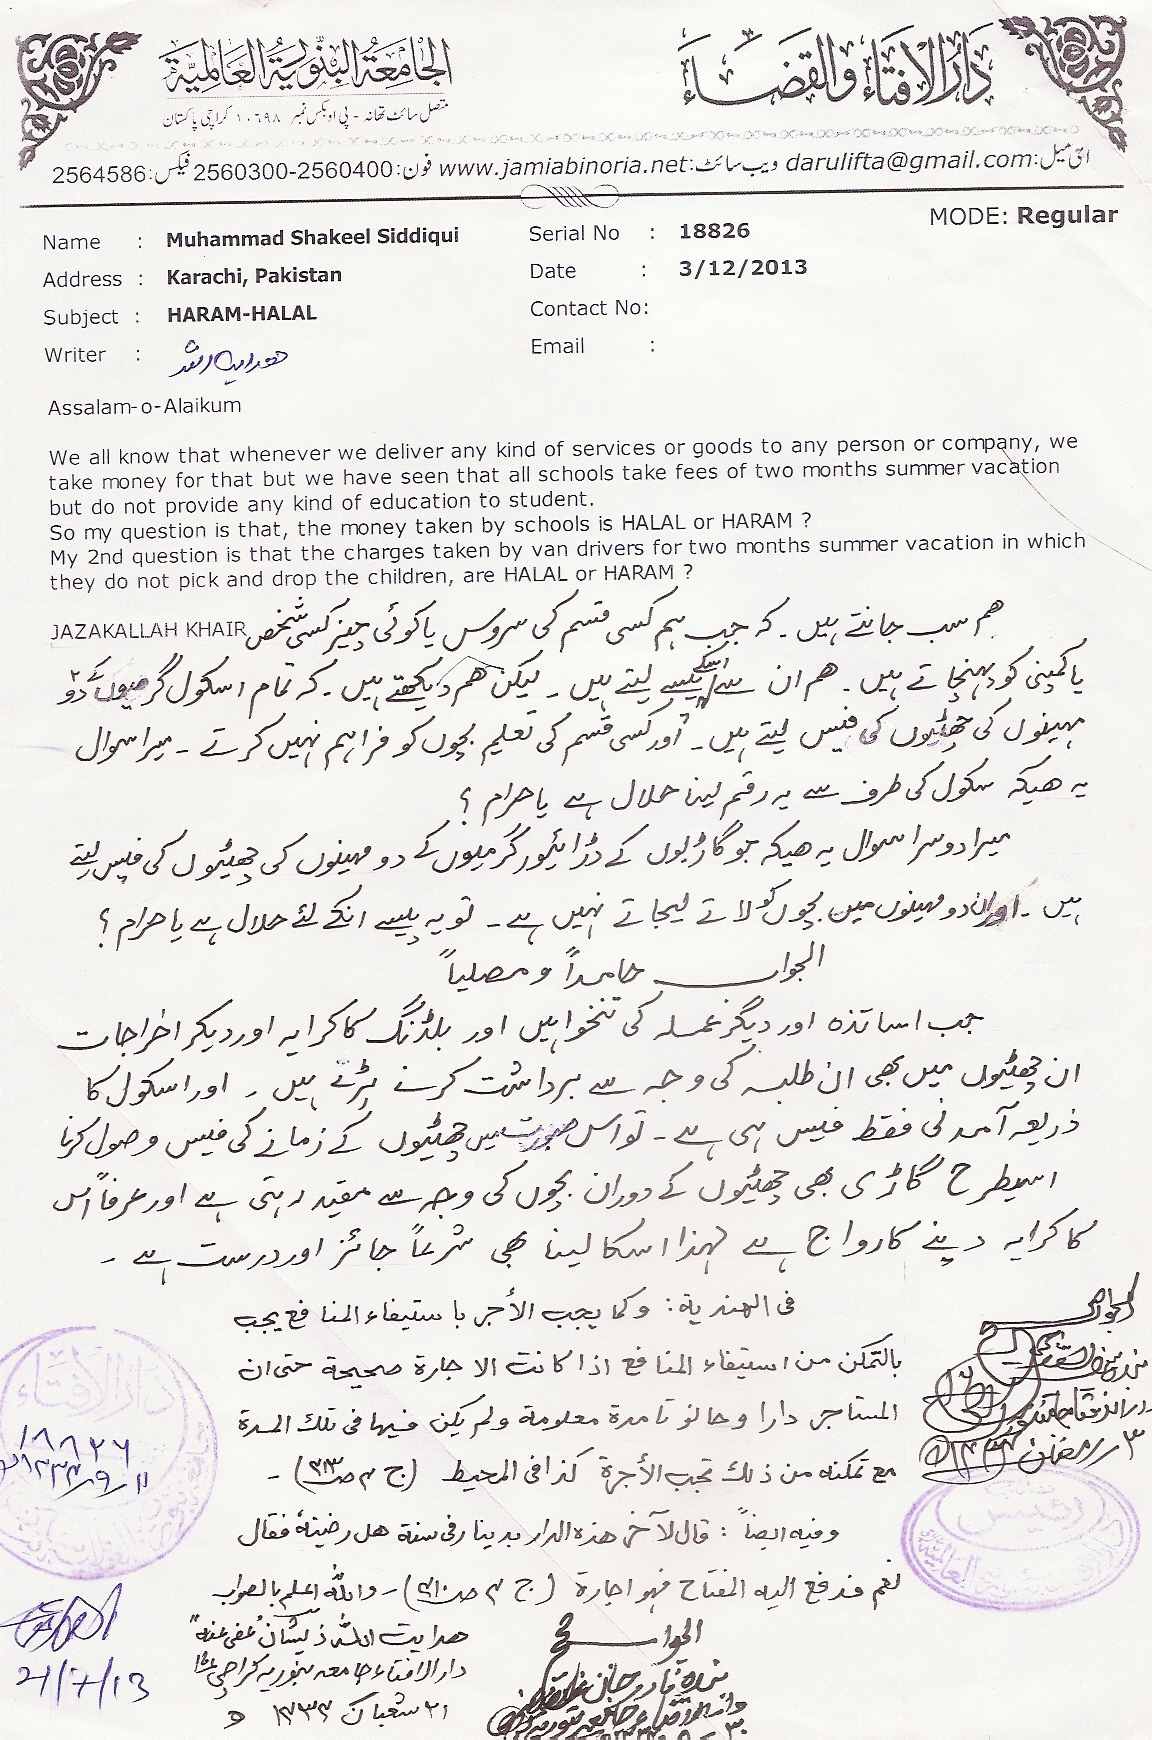 دَارُ الإفتَاء والقَضَاء
الجَامِعَةُ البِنُّورِيَّةُ العَالَمِيَّة
متصل سائٹ تھانہ - پی او بکس نمبر ۱۰۶۹۸ کراچی پاکستان
ای میل: darulifta@gmail.com ویب سائٹ: www.jamiabinoria.net فون: 2560300-2560400 فیکس: 2564586
MODE: Regular
Name : Muhammad Shakeel Siddiqui Serial No : 18826
Address : Karachi, Pakistan Date : 3/12/2013
Subject : HARAM-HALAL Contact No:
Writer : Email :
Assalam-o-Alaikum
We all know that whenever we deliver any kind of services or goods to any person or company, we
take money for that but we have seen that all schools take fees of two months summer vacation
but do not provide any kind of education to student.
So my question is that, the money taken by schools is HALAL or HARAM ?
My 2nd question is that the charges taken by van drivers for two months summer vacation in which
they do not pick and drop the children, are HALAL or HARAM ?
JAZAKALLAH KHAIR
ہم سب جانتے ہیں۔ کہ جب ہم کسی قسم کی سروس یا کوئی چیز کسی شخص
یا کمپنی کو پہنچاتے ہیں۔ ہم ان سے اسکے پیسے لیتے ہیں۔ لیکن ہم دیکھتے ہیں۔ کہ تمام اسکول گرمیوں کے دو
مہینوں کی چھٹیوں کی فیس لیتے ہیں۔ اور کسی قسم کی تعلیم بچوں کو فراہم نہیں کرتے۔ میرا سوال
یہ ھیکہ سکول کی طرف سے یہ رقم لینا حلال ہے یا حرام ؟
میرا دوسرا سوال یہ ھیکہ جو گاڑیوں کے ڈرائیور گرمیوں کے دو مہینوں کی چھٹیوں کی فیس لیتے
ہیں۔ اور ان دو مہینوں میں بچوں کو لاتے لیجاتے نہیں ہے۔ تو یہ پیسے انکے لئے حلال ہے یا حرام ؟
الجواب حامداً و مصلیاً
جب اساتذہ اور دیگر عملہ کی تنخواہیں اور بلڈنگ کا کرایہ اور دیگر اخراجات
ان چھٹیوں میں بھی ان طلبہ کی وجہ سے برداشت کرنے پڑتے ہیں۔ اور اسکول کا
ذریعہ آمدنی فقط فیس ہی ہے۔ تو اس صورت میں چھٹیوں کے زمانے کی فیس وصول کرنا
اسیطرح گاڑی بھی چھٹیوں کے دوران بچوں کی وجہ سے مقید رہتی ہے اور عرفاً اس
کا کرایہ دینے کا رواج ہے لہذا اسکا لینا بھی شرعاً جائز اور درست ہے۔
فی الھندیة: وکما یجب الأجر باستیفاء المنافع یجب
بالتمکن من استیفاء المنافع اذا کانت الاجارة صحیحة حتی ان
المستاجر دارا و حانوتا مدة معلومة ولم یکن فیها فی تلک المدة
مع تمکنه من ذلک تجب الأجرة کذا فی المحیط (ج ۴ ص ۴۱۳)۔
وفیه ایضاً: قال لآخر هذه الدار بدینار فی سنة هل رضیته فقال
نعم فدفع الیه المفتاح فهو اجارة (ج ۴ ص ۴۱۰)۔ واللہ اعلم بالصواب
ھدایت اللہ ذیشان عفی عنہ
دارالافتاء جامعہ بنوریہ کراچی
۲۱ شعبان ۱۴۳۴ ھ
الجواب صحیح
الجواب صحیح
۳ رمضان ۱۴۳۴
دار الإفتاء
۱۸۸۲۶
رئیس
21/7/13